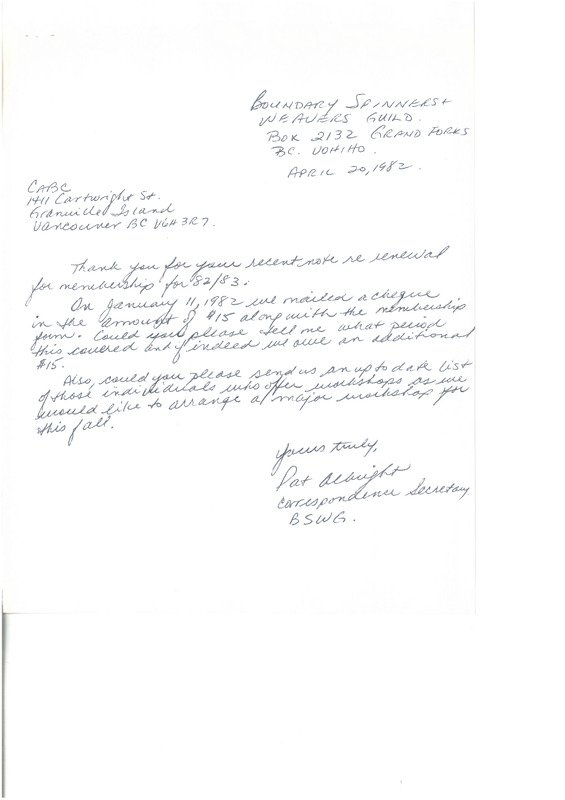 Boundary Spinners +
Weavers Guild.
Box 2132 Grand Forks
BC. V0H1H0.
April 20, 1982.
CABC
1411 Cartwright St.
Granville Island
Vancouver BC V6H 3R7.
Thank you for your recent note re renewal
for membership for 82/83.
On January 11, 1982 we mailed a cheque
in the amount of $15 along with the membership
form. Could you please tell me what period
this covered and if indeed we owe an additional
$15.
Also, could you please send us an up to date list
of those individuals who offer workshops as we
would like to arrange a major workshop for
this fall.
Yours truly,
Pat Albright
Correspondence Secretary
BSWG.